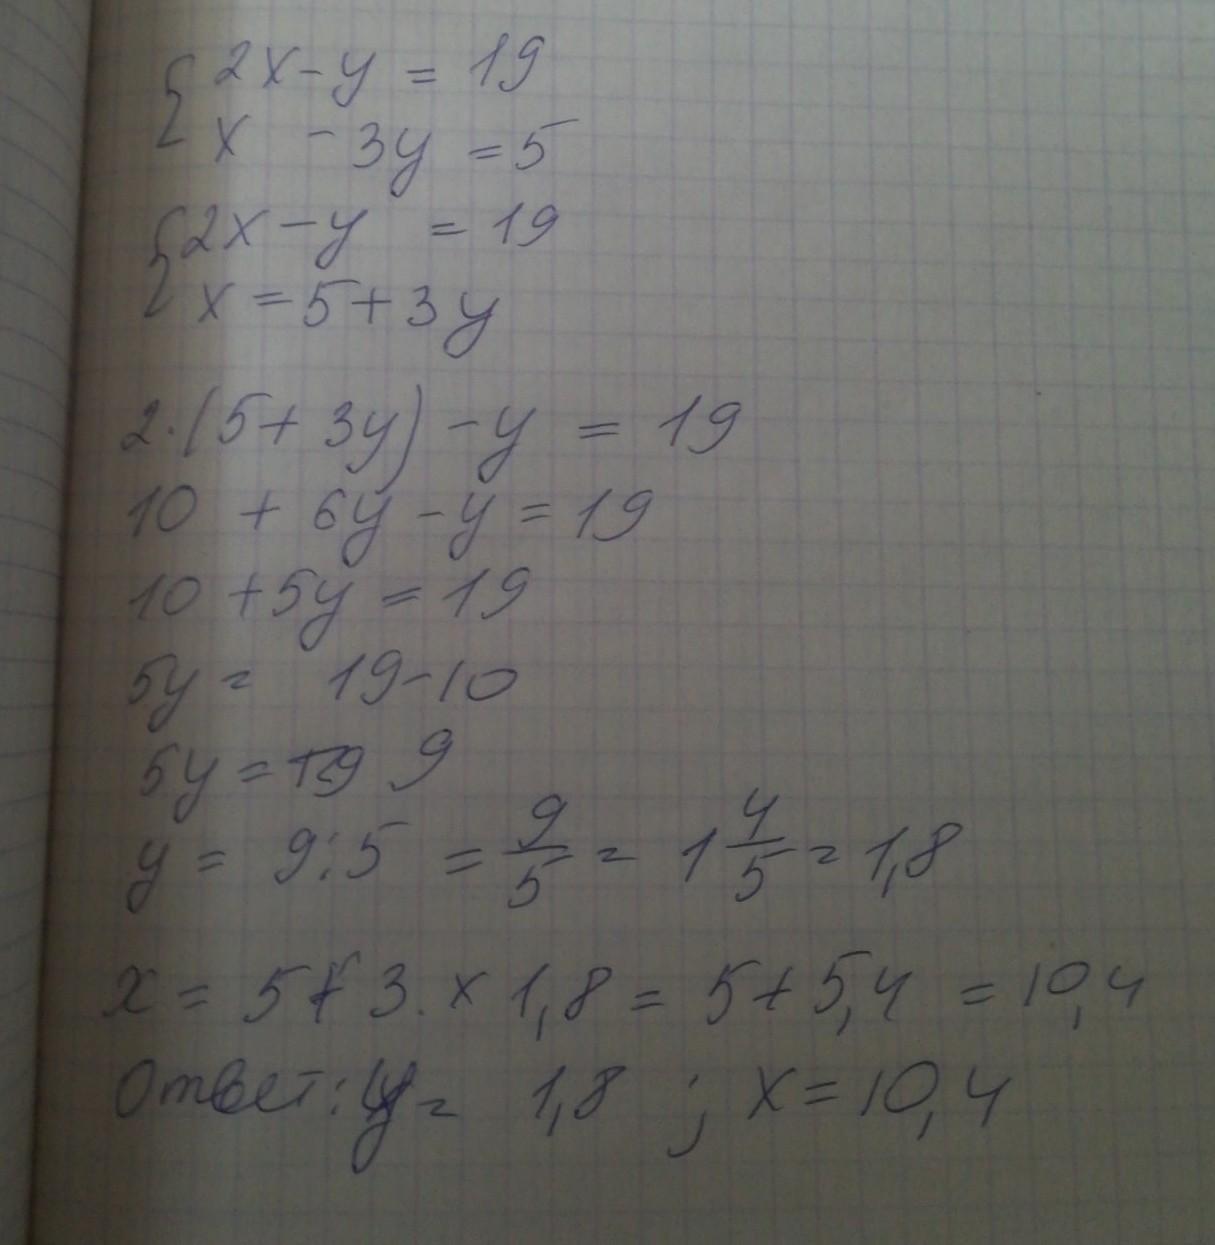 {2x - y = 19
x - 3y = 5
{2x - y = 19
x = 5 + 3y
2·(5 + 3y) - y = 19
10 + 6y - y = 19
10 + 5y = 19
5y = 19 - 10
5y = 9
y = 9:5 = 9/5 = 1 4/5 = 1,8
x = 5 + 3 · x 1,8 = 5 + 5,4 = 10,4
Ответ: y = 1,8 ; x = 10,4